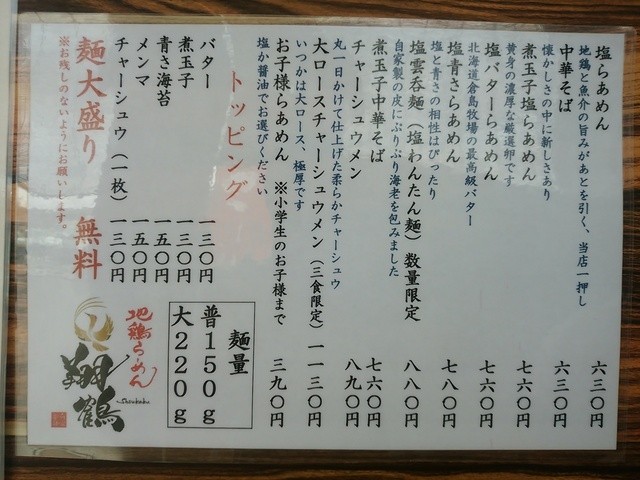 塩らあめん 六三〇円
地鶏と魚介の旨みがあとを引く、当店一押し
中華そば 六三〇円
懐かしさの中に新しさあり
煮玉子塩らあめん 七六〇円
黄身の濃厚な厳選卵です
塩バターらあめん 七六〇円
北海道倉島牧場の最高級バター
塩青さらあめん 七八〇円
塩と青さの相性はぴったり
塩雲呑麺（塩わんたん麺）数量限定 八八〇円
自家製の皮にぷりぷり海老を包みました
煮玉子中華そば 七六〇円
チャーシュウメン 八九〇円
丸一日かけて仕上げた柔らかチャーシュウ
大ロースチャーシュウメン（三食限定）一一三〇円
いつかは大ロース、極厚です
お子様らあめん ※小学生のお子様まで 三九〇円
塩か醤油でお選びください
トッピング
バター 一三〇円
煮玉子 一三〇円
青さ海苔 一五〇円
メンマ 一五〇円
チャーシュウ（一枚） 一三〇円
麺大盛り 無料
※お残しのないようにお願いします。
麺量
普150g
大220g
地鶏らーめん
翔鶴
Shoukaku